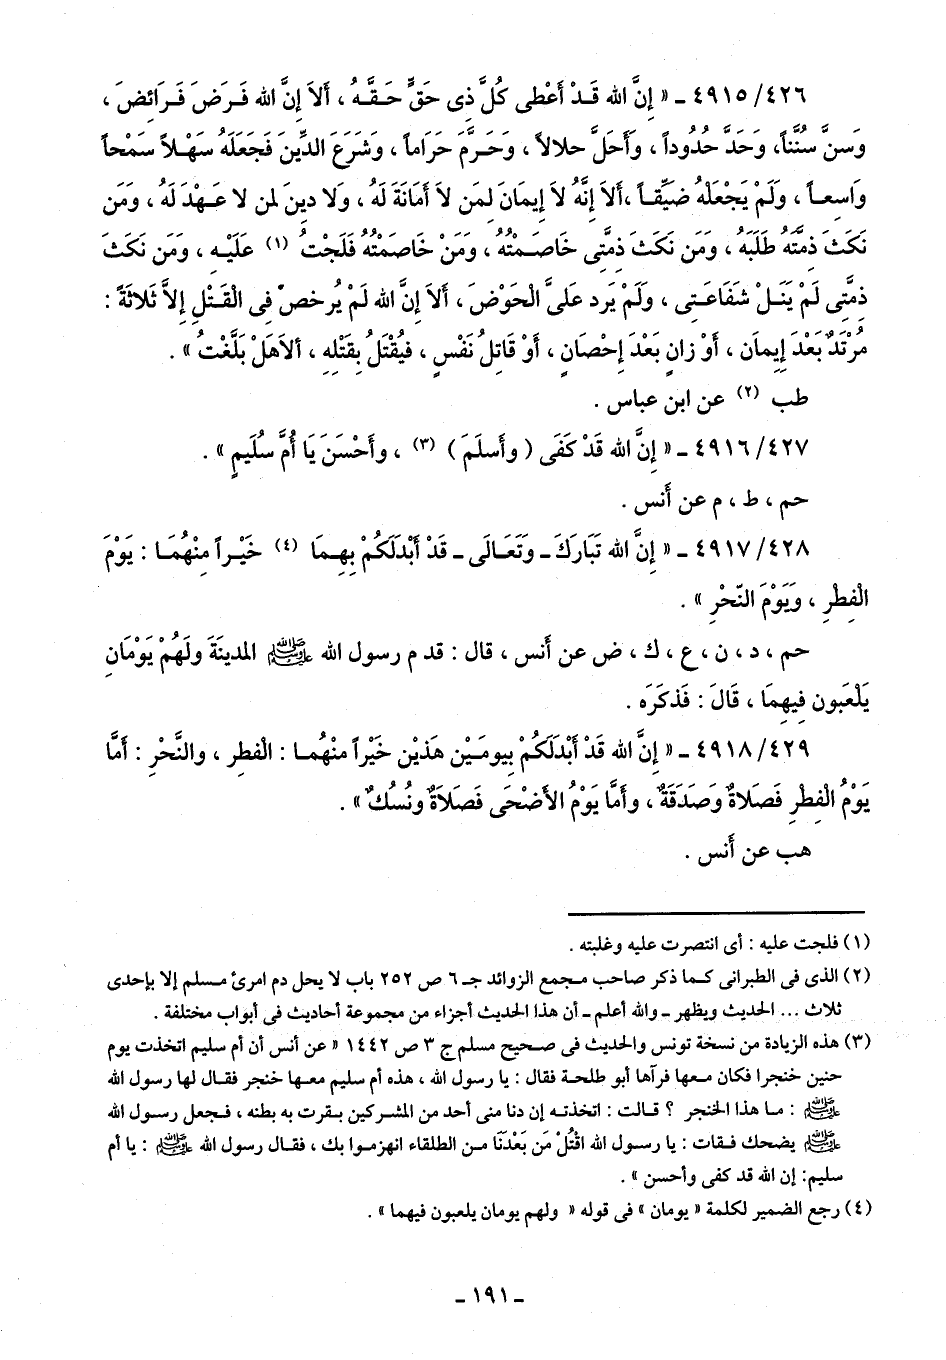 ٤٩١٥/٤٢٦ ـ « إِنَّ الله قَدْ أَعْطى كُلَّ ذِى حَقٍّ حَقَّهُ ، أَلاَ إِنَّ الله فَرَضَ فَرَائضَ ،
وَسَنَّ سُنَّناً، وَحَدَّ حُدُوداً ، وَأَحَلَّ حلالاً ، وَحَرَّمَ حَرَاماً ، وشَرَعَ الدِّينَ فَجَعَلَهُ سَهْلاً سَمْحاً
وَاسِعاً ، وَلَمْ يَجْعَلْهُ ضيِّقاً ،أَلاَ إِنَّهُ لاَ إِيمَانَ لِمَن لاَ أَمَانَةَ لَهُ ، وَلا دِينَ لمن لا عَهْدَ لَهُ ، وَمَن
نَكَثَ ذِمَّتَهُ طَلَبَهُ ، وَمَن نَكَثَ ذِمَّتى خَاصَمْتُهُ ، وَمَنْ خَاصَمْتُهُ فَلَجْتُ (١) عَلَيْهِ ، وَمَن نَكَثَ
ذِمَّتِى لَمْ يَنَلْ شَفَاعَتِى ، ولَمْ يَرِد عَلىَّ الْحَوْضَ ، أَلاَ إِنَّ الله لَمْ يُرخصْ فى الْقَتْلِ إِلاَّ ثَلاثَةً :
مُرْتَدٌ بَعْدَ إِيمَان ، أَوْ زانٍ بَعْدَ إِحْصَانٍ ، أَوْ قَاتِلُ نَفْسٍ ، فَيُقْتَلُ بِقَتْلِهِ ، أَلاَهَلْ بَلَّغْتُ » .
طب (٢) عن ابن عباس .
٤٩١٦/٤٢٧ ـ « إِنَّ الله قَدْ كَفَى ( وأَسلَمَ ) (٣) ، وأَحْسَنَ يَا أُمَّ سُلَيمٍ » .
حم ، ط ، م عن أَنس .
٤٩١٧/٤٢٨ ـ « إِنَّ الله تَبَارَكَ ـ وتَعَالَى ـ قَدْ أَبْدَلَكُمْ بِهِمَا (٤) خَيْراً مِنْهُمَا : يَوْمَ
الْفِطْرِ ، وَيَوْمَ النَّحْرِ » .
حم ، د ، ن ، ع ، ك ، ض عن أَنس ، قال : قدم رسول الله ﷺ المدينَةَ ولَهُمْ يَوْمَانِ
يَلْعَبون فِيهِمَا ، قَالَ : فَذكَرَه .
٤٩١٨/٤٢٩ ـ « إِنَّ الله قَدْ أَبْدَلَكُمْ بِيومَيْنِ هَذَيْنِ خَيْراً منْهُمَا : الْفطرِ ، والنَّحْرِ : أَمَّا
يَوْمُ الْفِطْرِ فَصَلاةٌ وَصَدَقَةٌ ، وأَمَّا يَوْمُ الأَضْحَى فَصَلاَةٌ ونُسُكٌ » .
هب عن أَنس .
(١) فلجت عليه : أى انتصرت عليه وغلبته .
(٢) الذى فى الطبرانى كما ذكر صاحب مجمع الزوائد جـ ٦ ص ٢٥٢ باب لا يحل دم امرئ مسلم إلا بإحدى
ثلاث ... الحديث ويظهر ـ والله أعلم ـ أن هذا الحديث أجزاء من مجموعة أحاديث فى أبواب مختلفة .
(٣) هذه الزيادة من نسخة تونس والحديث فى صحيح مسلم ج ٣ ص ١٤٤٢ « عن أنس أن أم سليم اتخذت يوم
حنين خنجرا فكان معها فرآها أبو طلحة فقال : يا رسول الله ، هذه أم سليم معها خنجر فقال لها رسول الله
ﷺ : ما هذا الخنجر ؟ قالت : اتخذته إن دنا منى أحد من المشركين بقرت به بطنه ، فجعل رسول الله
ﷺ يضحك فقات : يا رسول الله اقْتُلْ مَن بَعْدَنَا من الطلقاء انهزموا بك ، فقال رسول الله ﷺ : يا أم
سليم: إن الله قد كفى وأحسن » .
(٤) رجع الضمير لكلمة « يومان » فى قوله « ولهم يومان يلعبون فيهما » .
ـ ١٩١ ـ